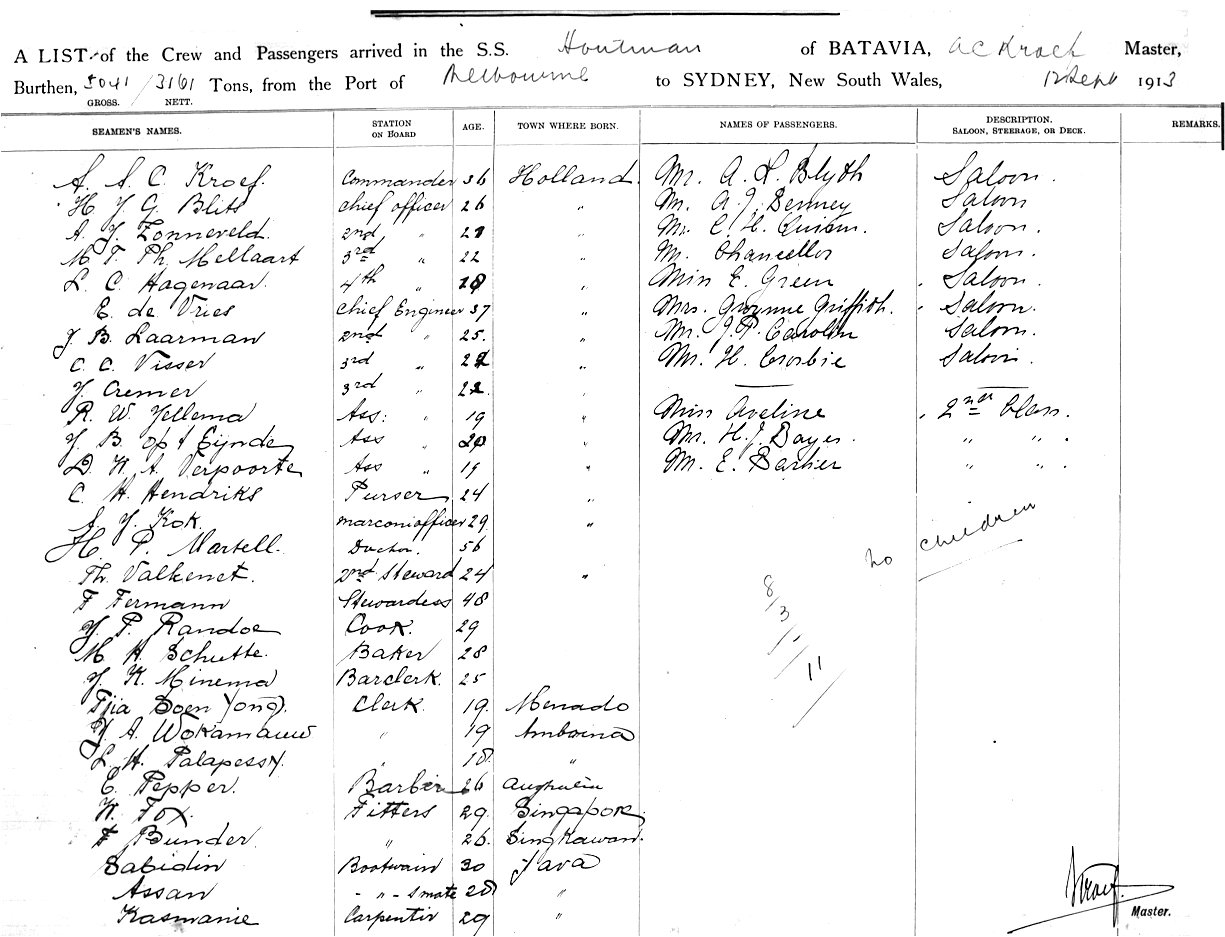 A LIST of the Crew and Passengers arrived in the S.S. Houtman of BATAVIA, A C Kroef Master,
Burthen, 5041 / 3161 Tons, from the Port of Melbourne to SYDNEY, New South Wales, 12 Sept 1913
GROSS. NETT.
SEAMEN'S NAMES. STATION ON BOARD AGE. TOWN WHERE BORN. NAMES OF PASSENGERS. DESCRIPTION. SALOON, STEERAGE, OR DECK. REMARKS.
A. A. C. Kroef. Commander 36 Holland. Mr. A. L. Blyth Saloon.
H. J. G. Blits chief officer 26 " Mr. A. J. Denney Saloon
A. J. Zonneveld. 2nd " " Mr. C. H. Saloon.
M. T. Ph. Mellaart 3rd " 22 " Mr. Chancellor Saloon.
L. C. Hagenaar. 4th " " Miss E. Green Saloon.
E. de Vries chief Engineer 37 " Mrs. Gwynne Griffith. Saloon.
J. B. Laarman 2nd " 25. " Mr. J. P. Carolin Saloon.
C. C. Visser 3rd " " Mr. H. Crosbie Saloon.
J. Cremer 3rd " "
R. W. Jellema Ass: " 19 " Miss Aveline 2nd Class.
J. B. op 't Eijnde Ass " " Mr. H. J. Bayes. " " .
D. H. A. Verpoorte Ass " 19 " Mr. E. Barbier " " .
C. H. Hendriks Purser 24 "
A. J. Kok. marconiofficer 29. "
H. P. Martell. Doctor. 56
Th. Valkenet. 2nd Steward 24 "
F Fermann Stewardess 48
J. P. Randoe Cook. 29
M. H. Schutte. Baker 28
J. H. Minema Barclerk. 25
Tjia Boen Yong. Clerk. 19. Menado
J. A. Wokamauw " 19 Amboina
L. H. Palapessy. " 18. "
E. Pepper. Barbier 26 Australia
H. Fox. Fitters 29. Singapore
F Bunder. " 26. Singkawan.
Sabidin Bootwain 30 Java
Assan - " - Smate 28 "
Kasmanie Carpentir 29 "
no children
8/3/1/11
Kroef.
Master.